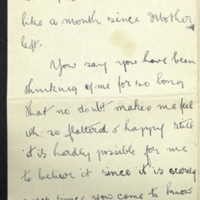 like a month since Mother
left.
You say you have been
thinking of me for so long
that no doubt makes me feel
oh. so flattered & happy still
it is hardly possible for me
to believe it since it is
ever since you came to know